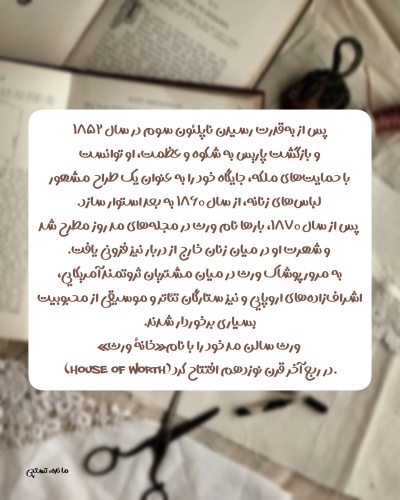 پس از به‌قدرت رسیدن ناپلئون سوم در سال ۱۸۵۲
و بازگشت پاریس به شکوه و عظمت، او توانست
با حمایت‌های ملکه، جایگاه خود را به عنوان یک طراح مشهور
لباس‌های زنانه، از سال ۱۸۶۰ به بعد استوار سازد.
پس از سال ۱۸۷۰، بارها نام ورث در مجله‌های مد روز مطرح شد
و شهرت او در میان زنان خارج از دربار نیز فزونی یافت.
به مرور پوشاک ورث در میان مشتریان ثروتمند آمریکایی،
اشراف‌زاده‌های اروپایی و نیز ستارگان تئاتر و موسیقی از محبوبیت
بسیاری برخوردار شدند.
ورث سالن مد خود را با نام«خانهٔ ورث»
(HOUSE OF WORTH) در ربع آخر قرن نوزدهم افتتاح کرد.